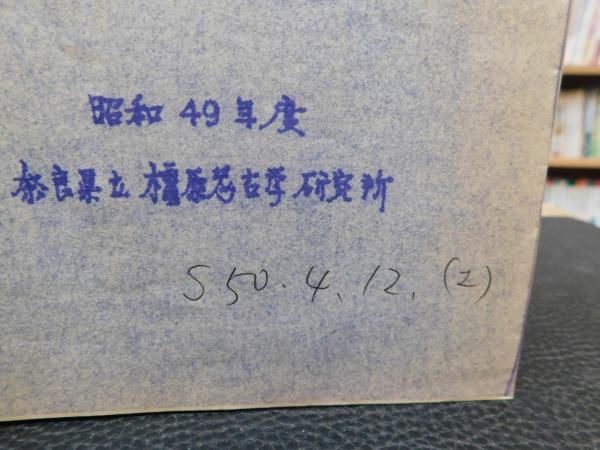 昭和 49 年度
奈良県立 橿原考古学 研究所
S 50. 4. 12. (Z)